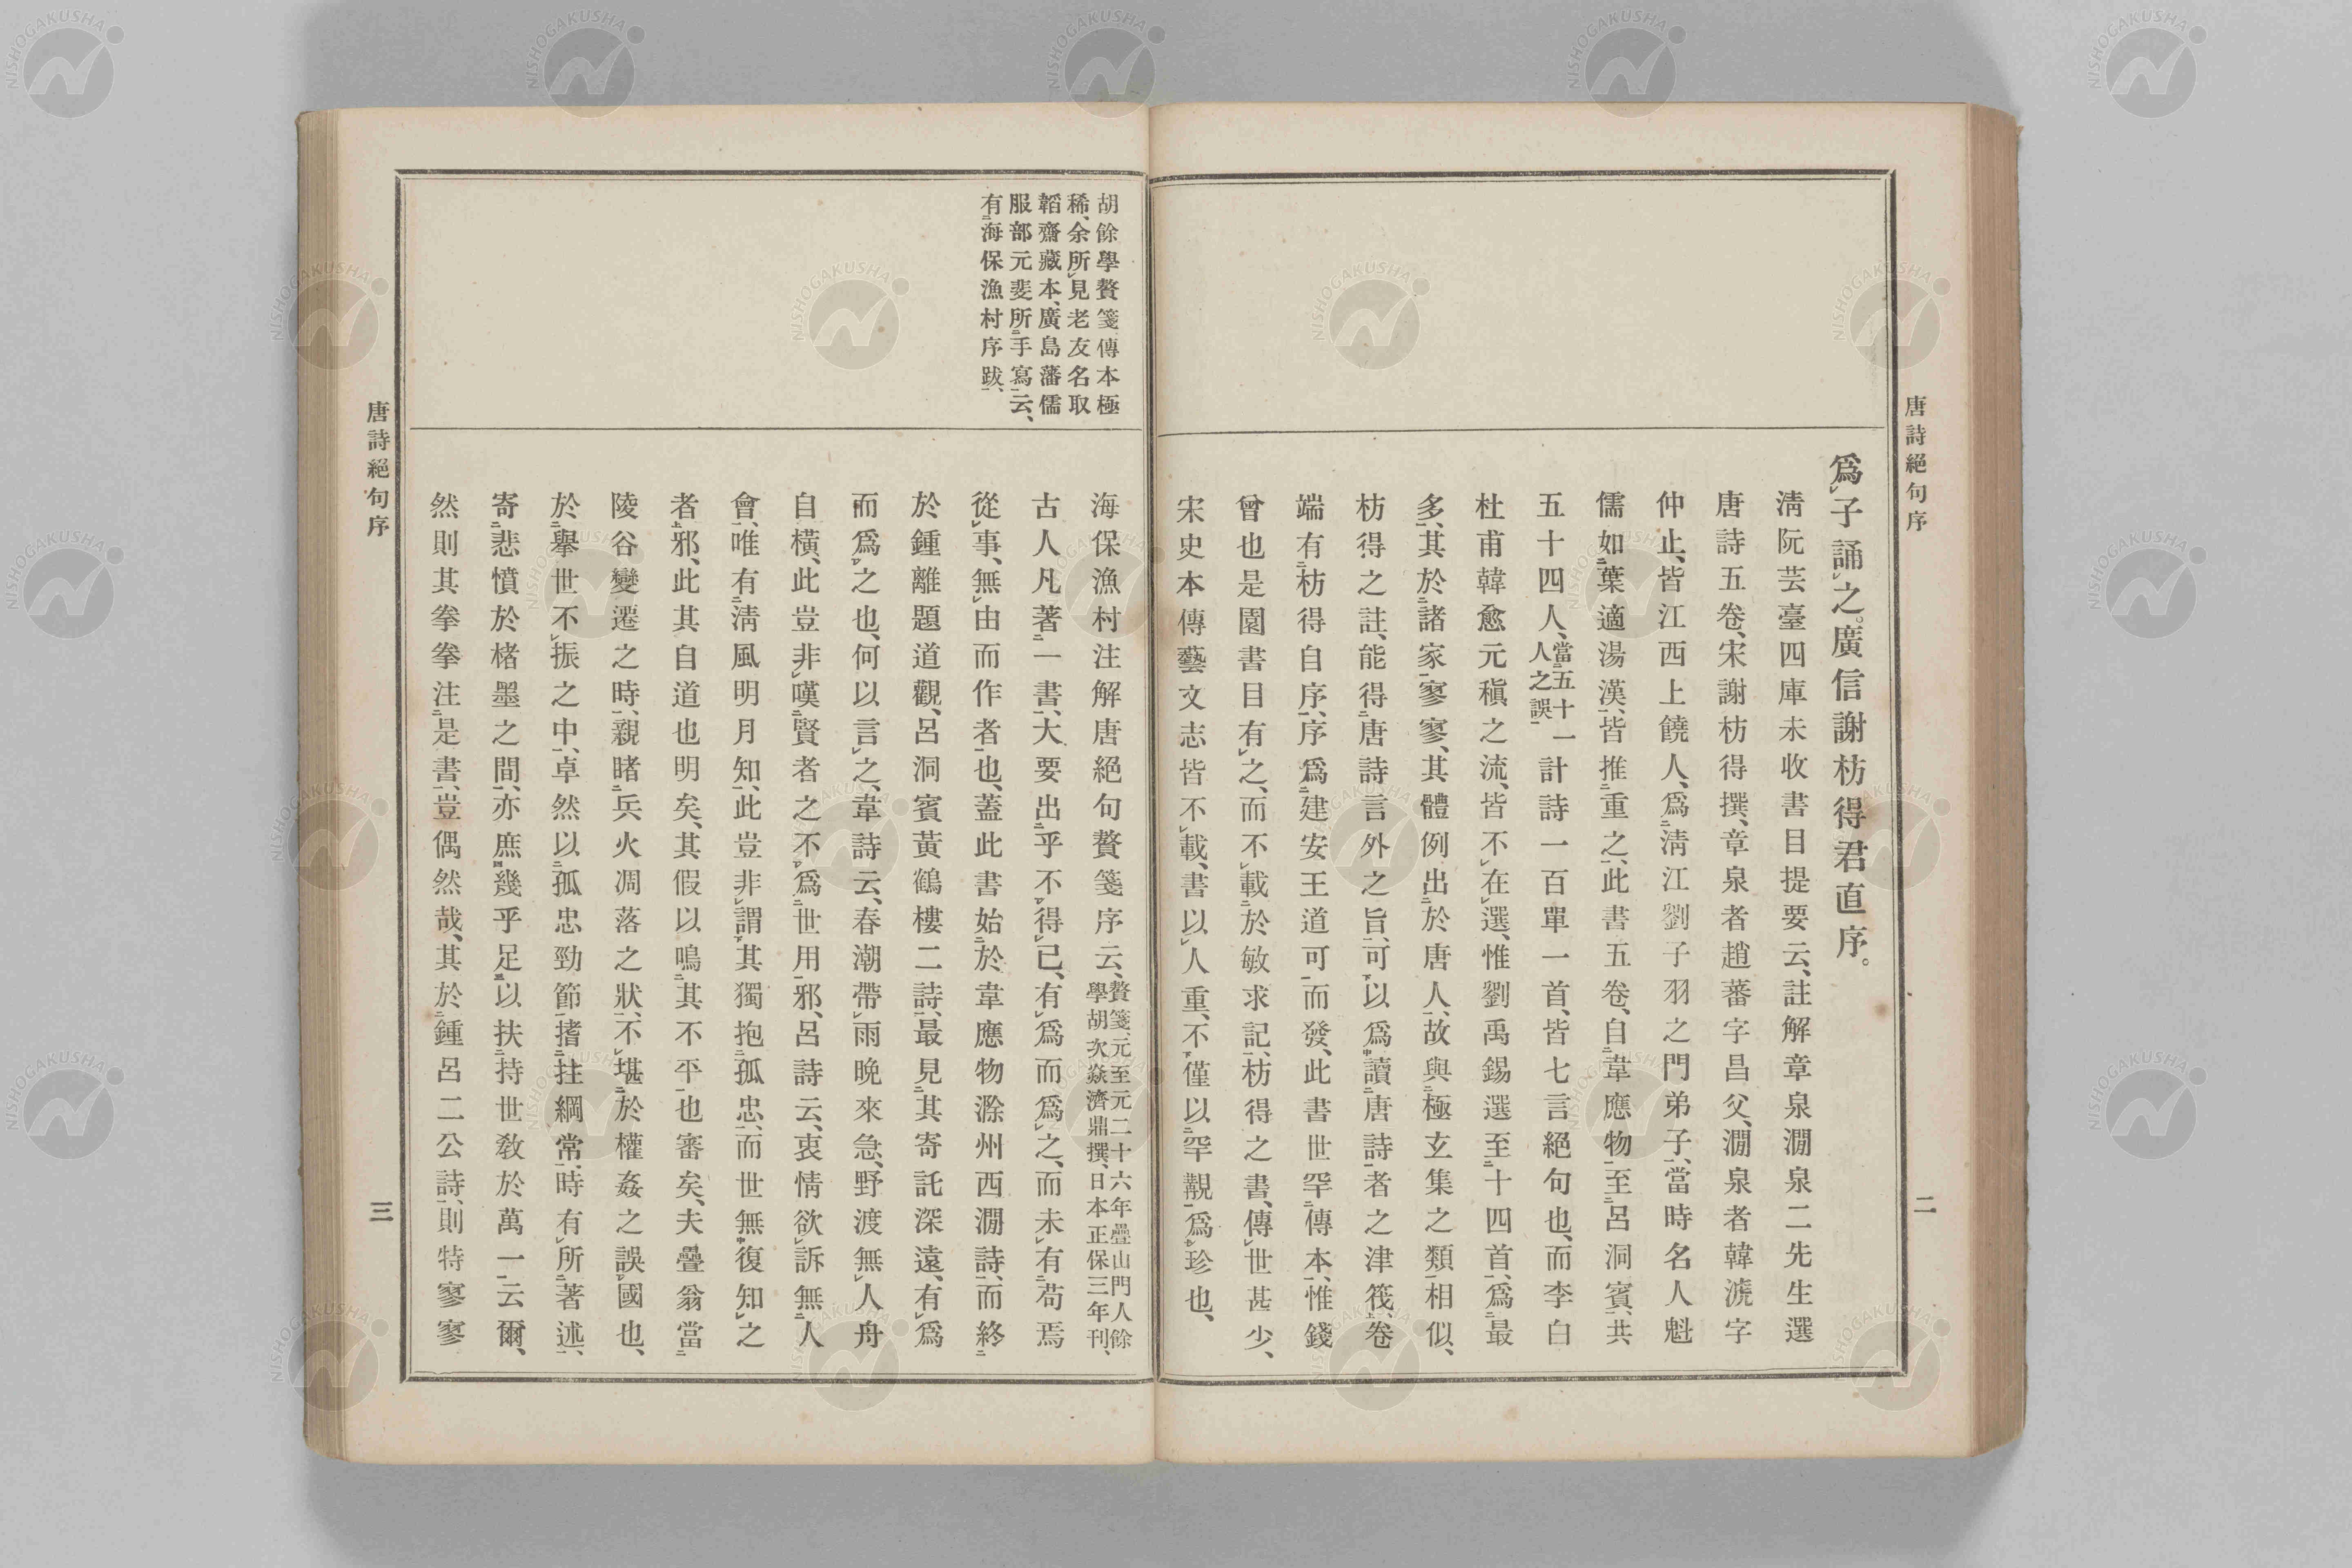 唐詩絕句序
二
爲子誦之。廣信謝枋得君直序。
淸阮芸臺四庫未收書目提要云、註解章泉澗泉二先生選
唐詩五卷、宋謝枋得撰、章泉者趙蕃字昌父、澗泉者韓淲字
仲止、皆江西上饒人、爲淸江劉子羽之門弟子、當時名人魁
儒如葉適湯漢、皆推重之、此書五卷、自韋應物至呂洞賓、共
五十四人、當五十一人之誤計詩一百單一首、皆七言絕句也、而李白
杜甫韓愈元稹之流、皆不在選、惟劉禹錫選至十四首、爲最
多、其於諸家寥寥、其體例出於唐人、故與極玄集之類相似、
枋得之註、能得唐詩言外之旨、可以爲讀唐詩者之津筏、卷
端有枋得自序、序爲建安王道可而發、此書世罕傳本、惟錢
曾也是園書目有之、而不載於敏求記、枋得之書、傳世甚少、
宋史本傳藝文志皆不載、書以人重、不僅以罕覯爲珍也、
胡餘學贅箋傳本極
稀、余所見老友名取
韜齋藏本、廣島藩儒
服部元斐所手寫云、
有海保漁村序跋、
海保漁村注解唐絕句贅箋序云、贅箋、元至元二十六年疊山門人餘學胡次焱濟鼎撰、日本正保三年刊、
古人凡著一書、大要出乎不得已、有爲而爲之、而未有苟焉
從事、無由而作者也、蓋此書始於韋應物滁州西澗詩、而終
於鍾離題道觀、呂洞賓黃鶴樓二詩、最見其寄託深遠、有爲
而爲之也、何以言之、韋詩云、春潮帶雨晚來急、野渡無人舟
自橫、此豈非嘆賢者之不爲世用邪、呂詩云、衷情欲訴無人
會、唯有淸風明月知、此豈非謂其獨抱孤忠、而世無復知之
者邪、此其自道也明矣、其假以鳴其不平也審矣、夫疊翁當
陵谷變遷之時、親睹兵火凋落之狀、不堪於權姦之誤國也、
於擧世不振之中、卓然以孤忠勁節、撐拄綱常、時有所著述、
寄悲憤於楮墨之間、亦庶幾乎足以扶持世敎於萬一云爾、
然則其拳拳注是書、豈偶然哉、其於鍾呂二公詩、則特寥寥
唐詩絕句序
三